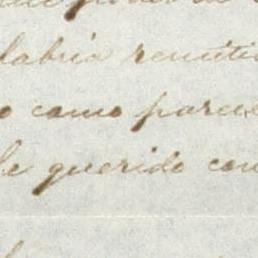 labria remiti
o como parece
le querido con